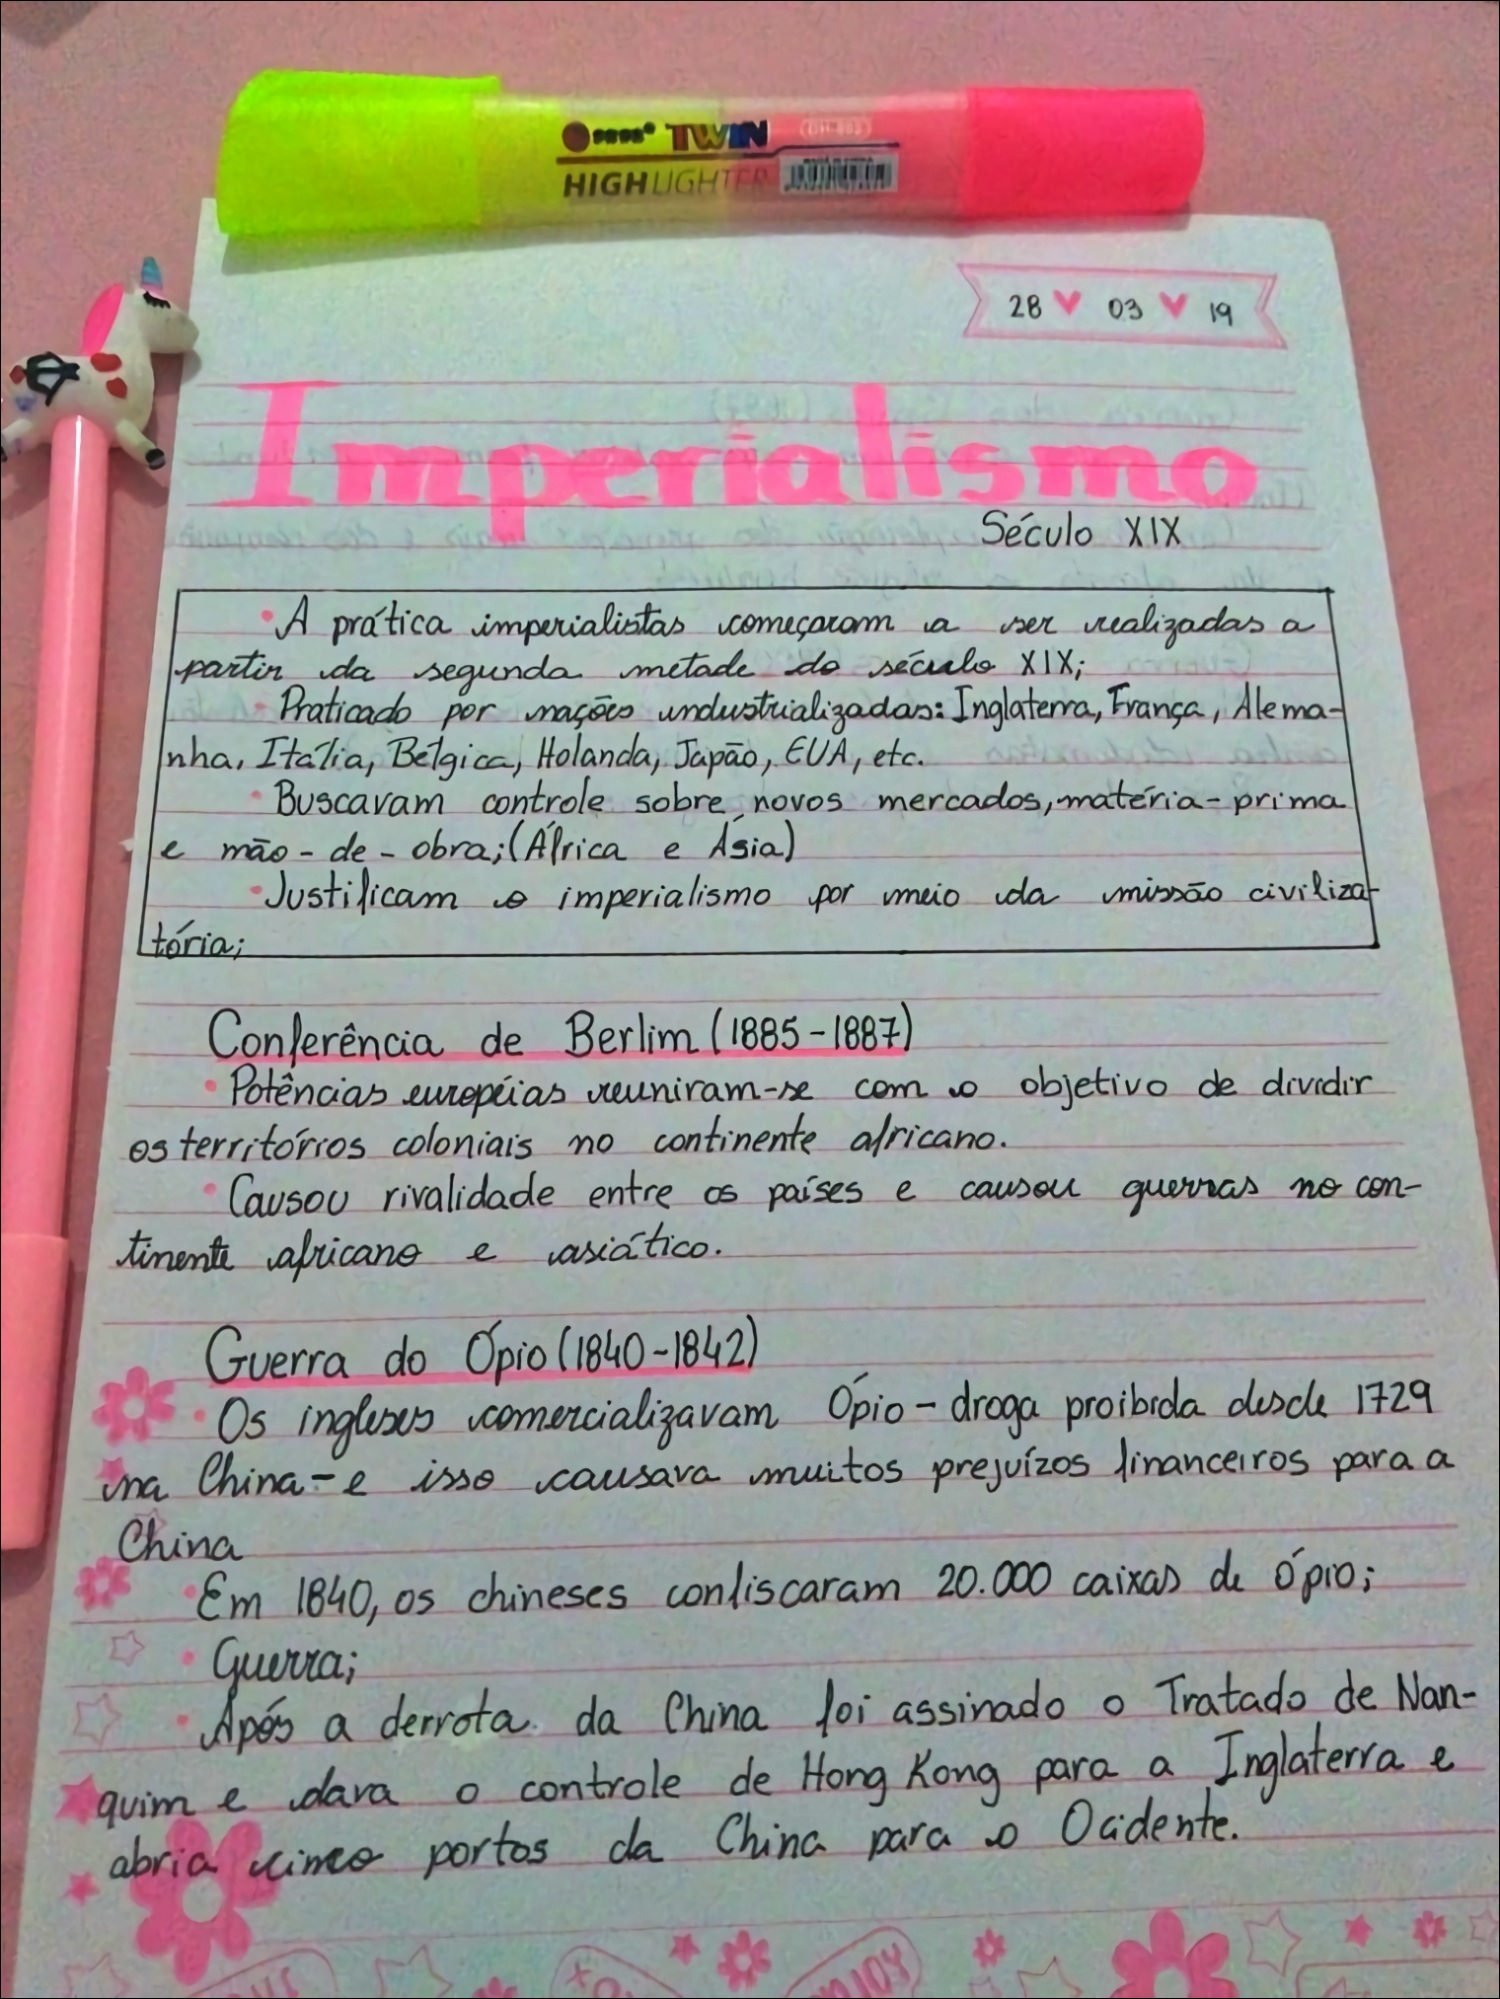 TWIN
HIGHLIGHTER
28 03 19
Imperialismo
Século XIX
• A prática imperialistas começaram a ser realizadas a
partir da segunda metade do século XIX;
• Praticado por nações industrializadas: Inglaterra, França, Alema-
nha, Itália, Bélgica, Holanda, Japão, EUA, etc.
• Buscavam controle sobre novos mercados, matéria-prima
e mão-de-obra; (África e Ásia)
• Justificam o imperialismo por meio da missão civiliza-
tória;
Conferência de Berlim (1885-1887)
• Potências européias reuniram-se com o objetivo de dividir
os territórios coloniais no continente africano.
• Causou rivalidade entre os países e causou guerras no con-
tinente africano e asiático.
Guerra do Ópio (1840-1842)
• Os ingleses comercializavam Ópio - droga proibida desde 1729
na China - e isso causava muitos prejuízos financeiros para a
China
• Em 1840, os chineses confiscaram 20.000 caixas de ópio;
• Guerra;
• Após a derrota da China foi assinado o Tratado de Nan-
quim e dava o controle de Hong Kong para a Inglaterra e
abria cinco portos da China para o Ocidente.
ENJOY